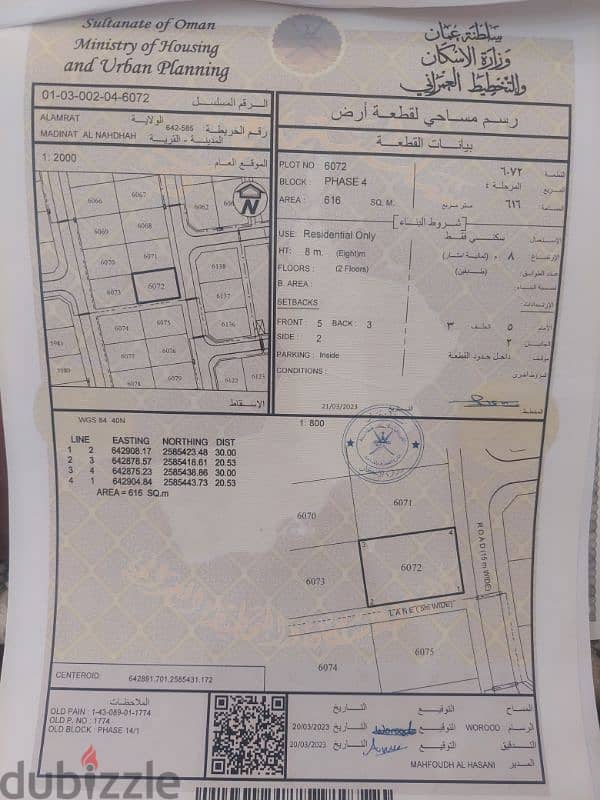 Sultanate of Oman
Ministry of Housing
and Urban Planning
سلطنة عمان
وزارة الإسكان
والتخطيط العمراني
01-03-002-04-6072 الرقم المسلسل
ALAMRAT الولاية
642-585 رقم الخريطة:
MADINAT AL NAHDHAH المدينة - القرية
1: 2000 الموقع العام
رسم مساحي لقطعة أرض
بيانات القطعة
PLOT NO 6072 ٦٠٧٢ القطعة
BLOCK : PHASE 4 المرحلة ٤ المربع
AREA : 616 SQ. M. متر مربع ٦١٦ المساحة
شروط البناء
USE: Residential Only سكني فقط الاستعمال
HT: 8 m. (Eight)m ٨ م (ثمانية أمتار) الارتفاع
FLOORS : (2 Floors) (طابقين) عدد الطوابق
B. AREA :
SETBACKS الارتدادات
FRONT 5 BACK : 3 ٣ الخلف ٥ الأمام
SIDE : 2 ٢ الجانبين
PARKING : Inside داخل حدود القطعة موقف
CONDITIONS : شروط أخرى
21/03/2023 التاريخ المخطط
6066
6067
6062
6069
6068
6070
6071
6138
6073
6072
6137
6074
6075
6136
6077
6076
5981
5980
6078
6079
6122
6123
الإسقاط
WGS 84 40N
1: 800
LINE EASTING NORTHING DIST
1 2 642908.17 2585423.48 30.00
2 3 642878.57 2585418.61 20.53
3 4 642875.23 2585438.86 30.00
4 1 642904.84 2585443.73 20.53
AREA = 616 SQ.m
6070
6071
3
4
6073
6072
2
1
ROAD (15 m WIDE)
LANE (5m WIDE)
6074
6075
CENTEROID: 642891.701,2585431.172
الملاحظات
OLD PAIN : 1-43-089-01-1774
OLD P. NO : 1774
OLD BLOCK : PHASE 14/1
التاريخ التوقيع المساح
20/03/2023 التاريخ Worood التوقيع WOROOD الرسام
20/03/2023 التاريخ التوقيع التدقيق
MAHFOUDH AL HASANI المدير
dubizzle